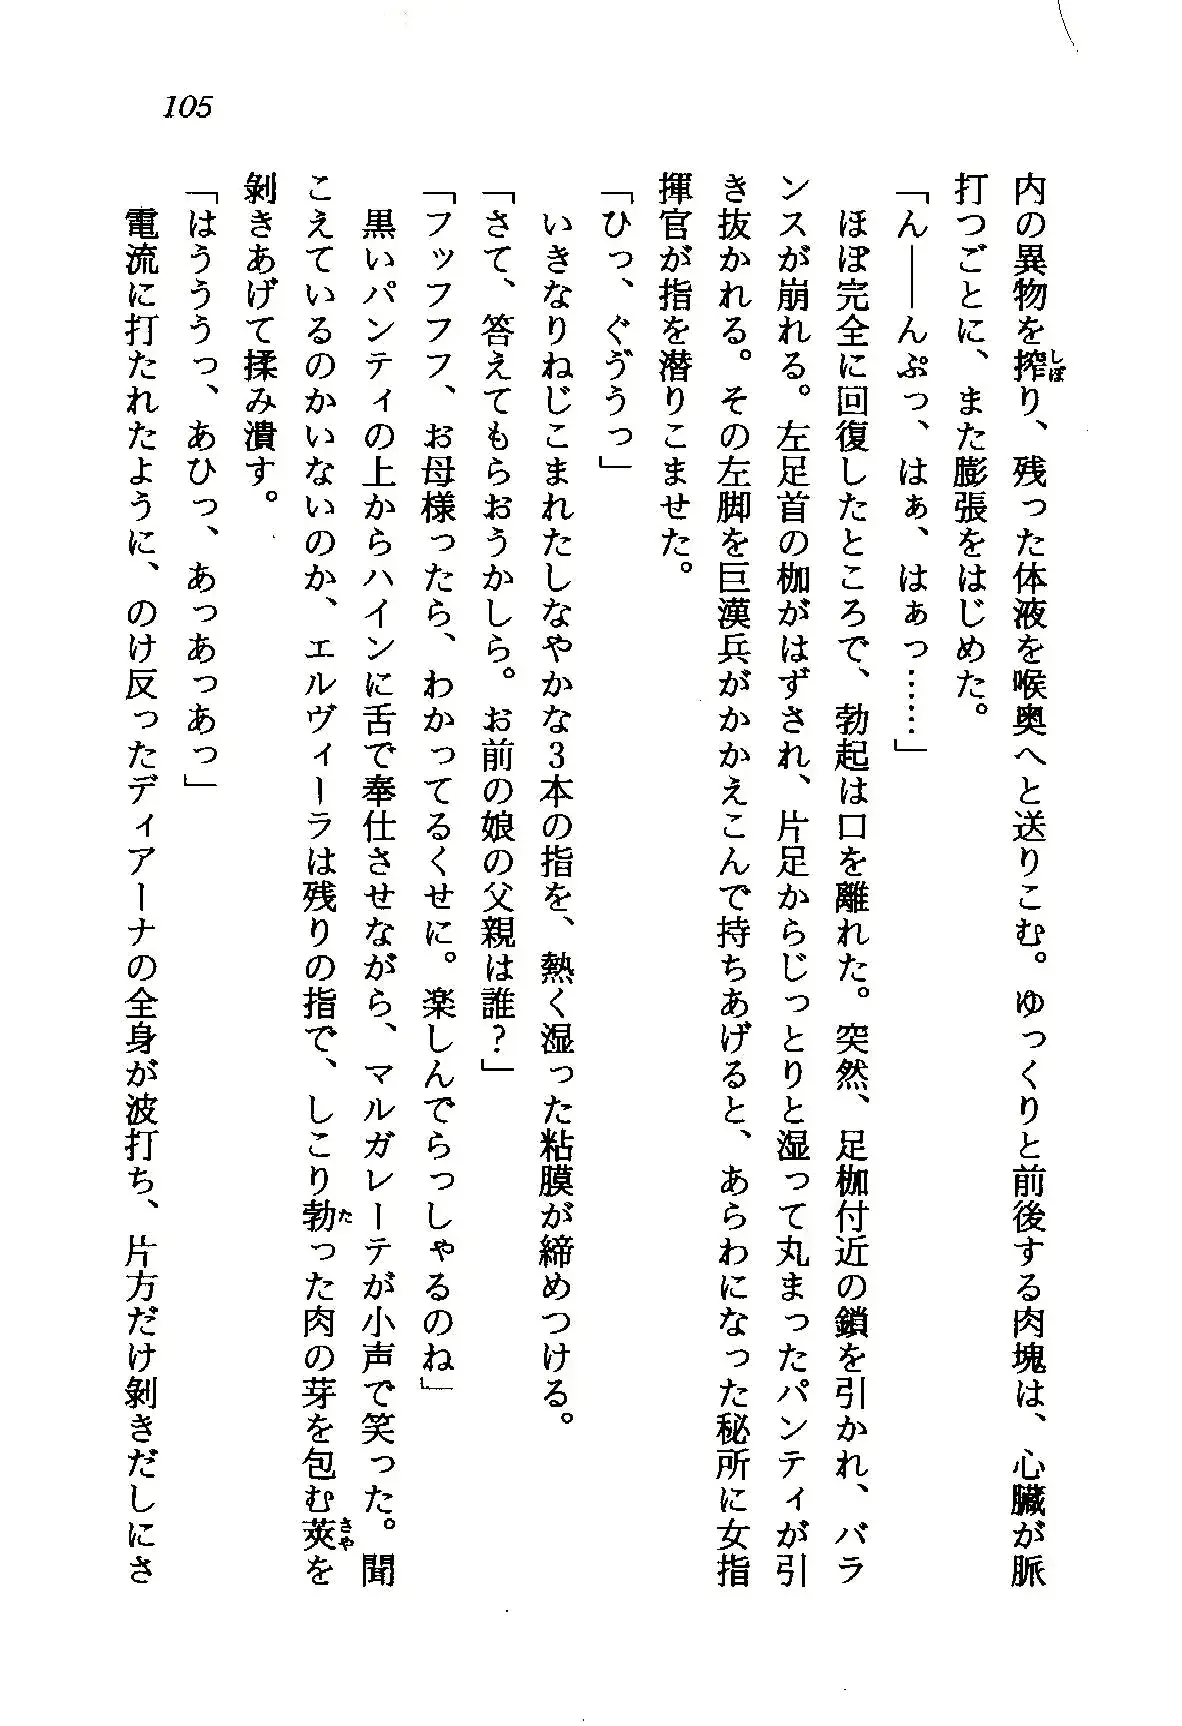 105
内の異物を搾り、残った体液を喉奥へと送りこむ。ゆっくりと前後する肉塊は、心臓が脈
打つごとに、また膨張をはじめた。
「ん――んぷっ、はぁ、はぁっ……」
ほぼ完全に回復したところで、勃起は口を離れた。突然、足枷付近の鎖を引かれ、バラ
ンスが崩れる。左足首の枷がはずされ、片足からじっとりと湿って丸まったパンティが引
き抜かれる。その左脚を巨漢兵がかかえこんで持ちあげると、あらわになった秘所に女指
揮官が指を潜りこませた。
「ひっ、ぐゔうっ」
いきなりねじこまれたしなやかな3本の指を、熱く湿った粘膜が締めつける。
「さて、答えてもらおうかしら。お前の娘の父親は誰?」
「フッフフフ、お母様ったら、わかってるくせに。楽しんでらっしゃるのね」
黒いパンティの上からハインに舌で奉仕させながら、マルガレーテが小声で笑った。聞
こえているのかいないのか、エルヴィーラは残りの指で、しこり勃った肉の芽を包む莢を
剝きあげて揉み潰す。
「はううぅっ、あひっ、あっあっあっ」
電流に打たれたように、のけ反ったディアーナの全身が波打ち、片方だけ剝きだしにさ